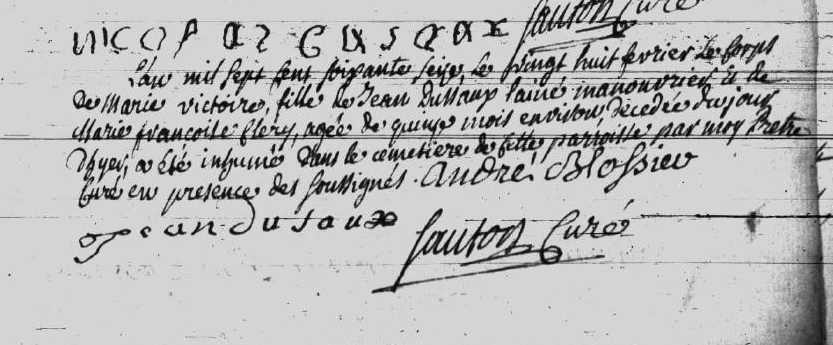 Sauton Curé
nicolas Dusaux
L'an mil sept cent soixante seize, le vingt huit fevrier le Corps
de Marie victoire, fille de Jean Dussaux l'ainé manouvrier, et de
Marie francoise Clery, agée de quinze mois environ, décédée du jour
d'hyer, a été inhumé dans le cemetiere de cette parroisse par moy Pretre
Curé en presence des soussignés. andre Blossier
Jean dusaux
Sauton Curé